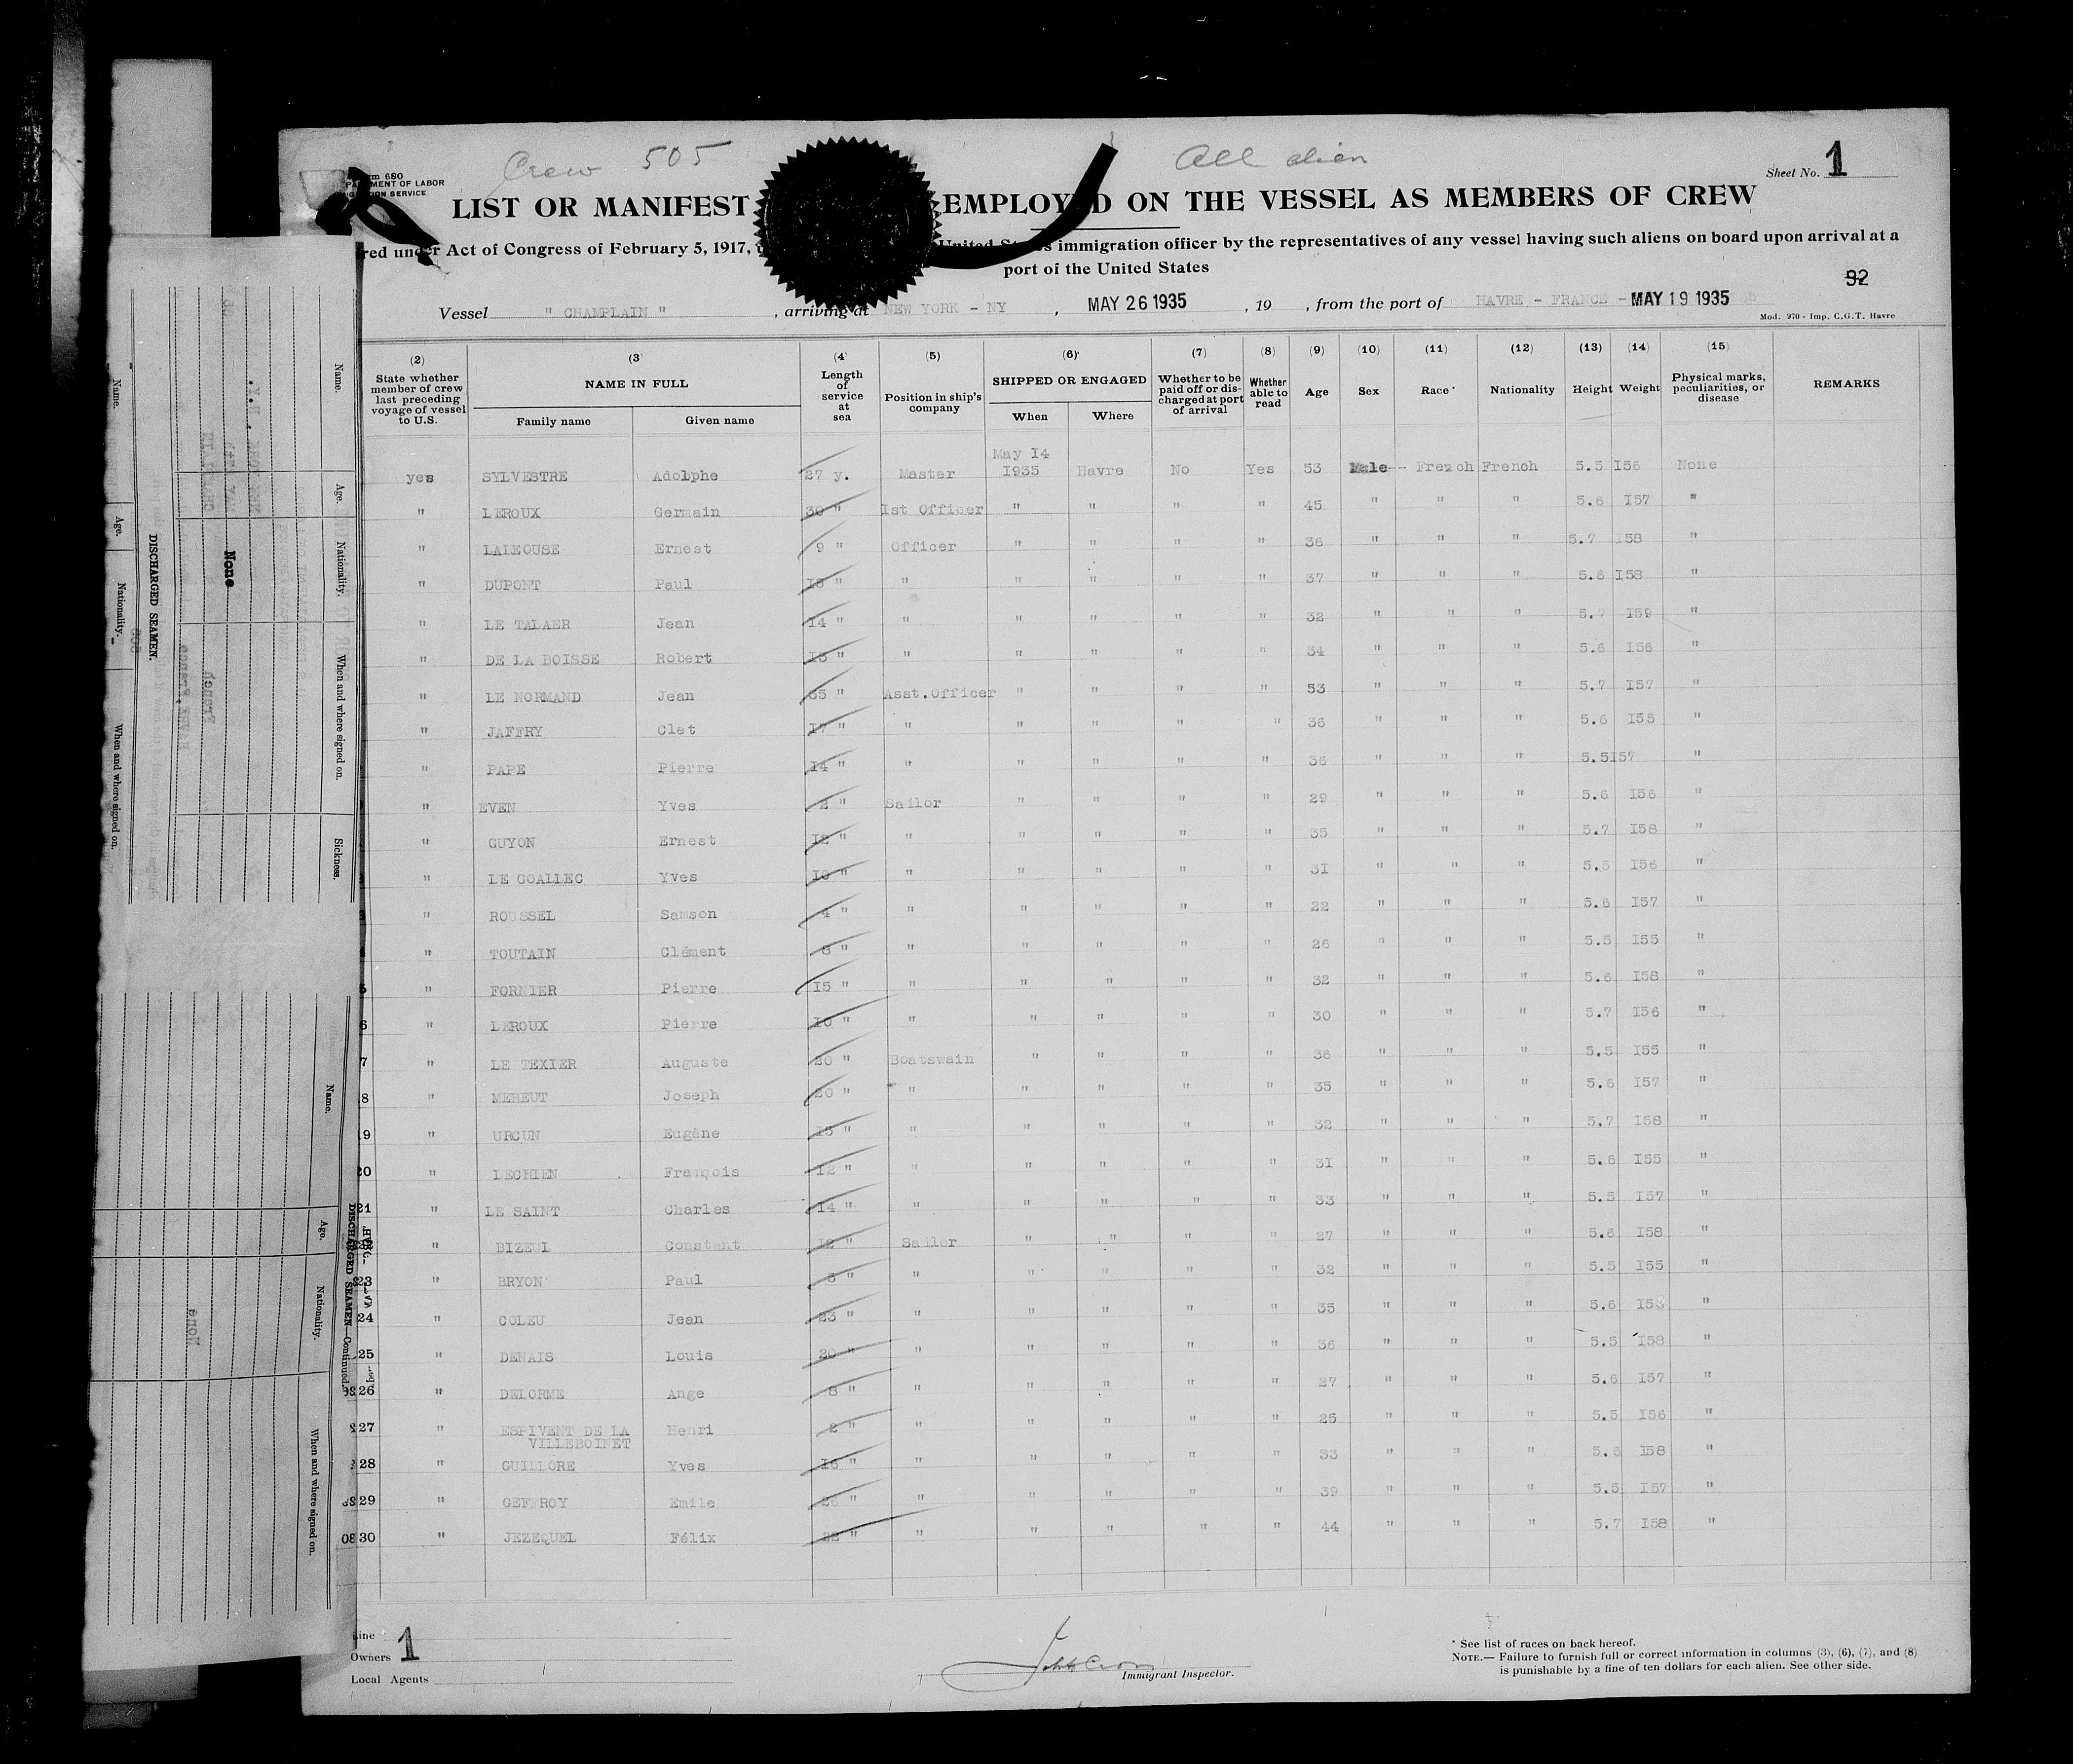 Crew 505
All alien
Sheet No. 1
LIST OR MANIFEST EMPLOYED ON THE VESSEL AS MEMBERS OF CREW
red under Act of Congress of February 5, 1917, United States immigration officer by the representatives of any vessel having such aliens on board upon arrival at a
port of the United States
92
Vessel " CHAMPLAIN " , arriving at NEW YORK - NY , MAY 26 1935 , 19 , from the port of HAVRE - FRANCE - MAY 19 1935
Mod. 970 - Imp. C.G.T. Havre
(2) (3) (4) (5) (6) (7) (8) (9) (10) (11) (12) (13) (14) (15)
State whether member of crew last preceding voyage of vessel to U.S. NAME IN FULL Family name Given name Length of service at sea Position in ship's company SHIPPED OR ENGAGED When Where Whether to be paid off or discharged at port of arrival Whether able to read Age Sex Race* Nationality Height Weight Physical marks, peculiarities, or disease REMARKS
yes SYLVESTRE Adolphe 27 y. Master May I4 I935 Havre No Yes 53 Male French French 5.5 I56 None
" LEROUX Germain 30 " Ist Officer " " " " 45 " " " 5.6 I57 "
" Ernest 9 " Officer " " " " 36 " " " 5.7 I58 "
" DUPONT Paul " " " " " " 37 " " " 5.6 I58 "
" LE TALAER Jean I4 " " " " " " 32 " " " 5.7 I59 "
" DE LA BOISSE Robert I3 " " " " " " 34 " " " 5.6 I56 "
" LE NORMAND Jean 35 " Asst.Officer " " " " 53 " " " 5.7 I57 "
" JAFFRY Clet I7 " " " " " " 36 " " " 5.6 I55 "
" PAPE Pierre I4 " " " " " " 36 " " " 5.5 I57 "
" EVEN Yves 2 " Sailor " " " " 29 " " " 5.6 I56 "
" GUYON Ernest I2 " " " " " " 35 " " " 5.7 I58 "
" LE GOALLEC Yves I0 " " " " " " 31 " " " 5.5 I56 "
" ROUSSEL Samson 4 " " " " " " 22 " " " 5.6 I57 "
" TOUTAIN Clément 8 " " " " " " 26 " " " 5.5 I55 "
" FORNIER Pierre I5 " " " " " " 32 " " " 5.6 I58 "
" LEROUX Pierre I0 " " " " " " 30 " " " 5.7 I56 "
" LE TEXIER Auguste 20 " Boatswain " " " " 36 " " " 5.5 I55 "
" MEHEUT Joseph 20 " " " " " " 35 " " " 5.6 I57 "
19 " URCUN Eugène I5 " " " " " " 32 " " " 5.7 I58 "
20 " LECHIEN François I2 " " " " " " 31 " " " 5.6 I55 "
21 " LE SAINT Charles I4 " " " " " " 33 " " " 5.5 I57 "
" BIZEUL Constant I2 " Sailor " " " " 27 " " " 5.6 I58 "
23 " BRYON Paul " " " " " " 32 " " " 5.5 I55 "
24 " COLEU Jean 23 " " " " " " 35 " " " 5.6 "
25 " DENAIS Louis 20 " " " " " " 36 " " " 5.5 I58 "
26 " DELORME Ange 8 " " " " " " 27 " " " 5.6 I57 "
27 " ESPIVENT DE LA VILLEBOINET Henri 2 " " " " " " 25 " " " 5.5 I56 "
28 " GUILLORE Yves I6 " " " " " " 33 " " " 5.6 I58 "
29 " GEFFROY Emile 26 " " " " " " 39 " " " 5.5 I57 "
30 " JEZEQUEL Félix 22 " " " " " " 44 " " " 5.7 I58 "
Line
Owners 1
Local Agents
Immigrant Inspector.
* See list of races on back hereof.
NOTE.— Failure to furnish full or correct information in columns (3), (6), (7), and (8)
is punishable by a fine of ten dollars for each alien. See other side.
DISCHARGED SEAMEN.
Name. Age. Nationality. When and where signed on. Sickness.
None
DISCHARGED SEAMEN—Continued.
Name. Age. Nationality. When and where signed on.
None